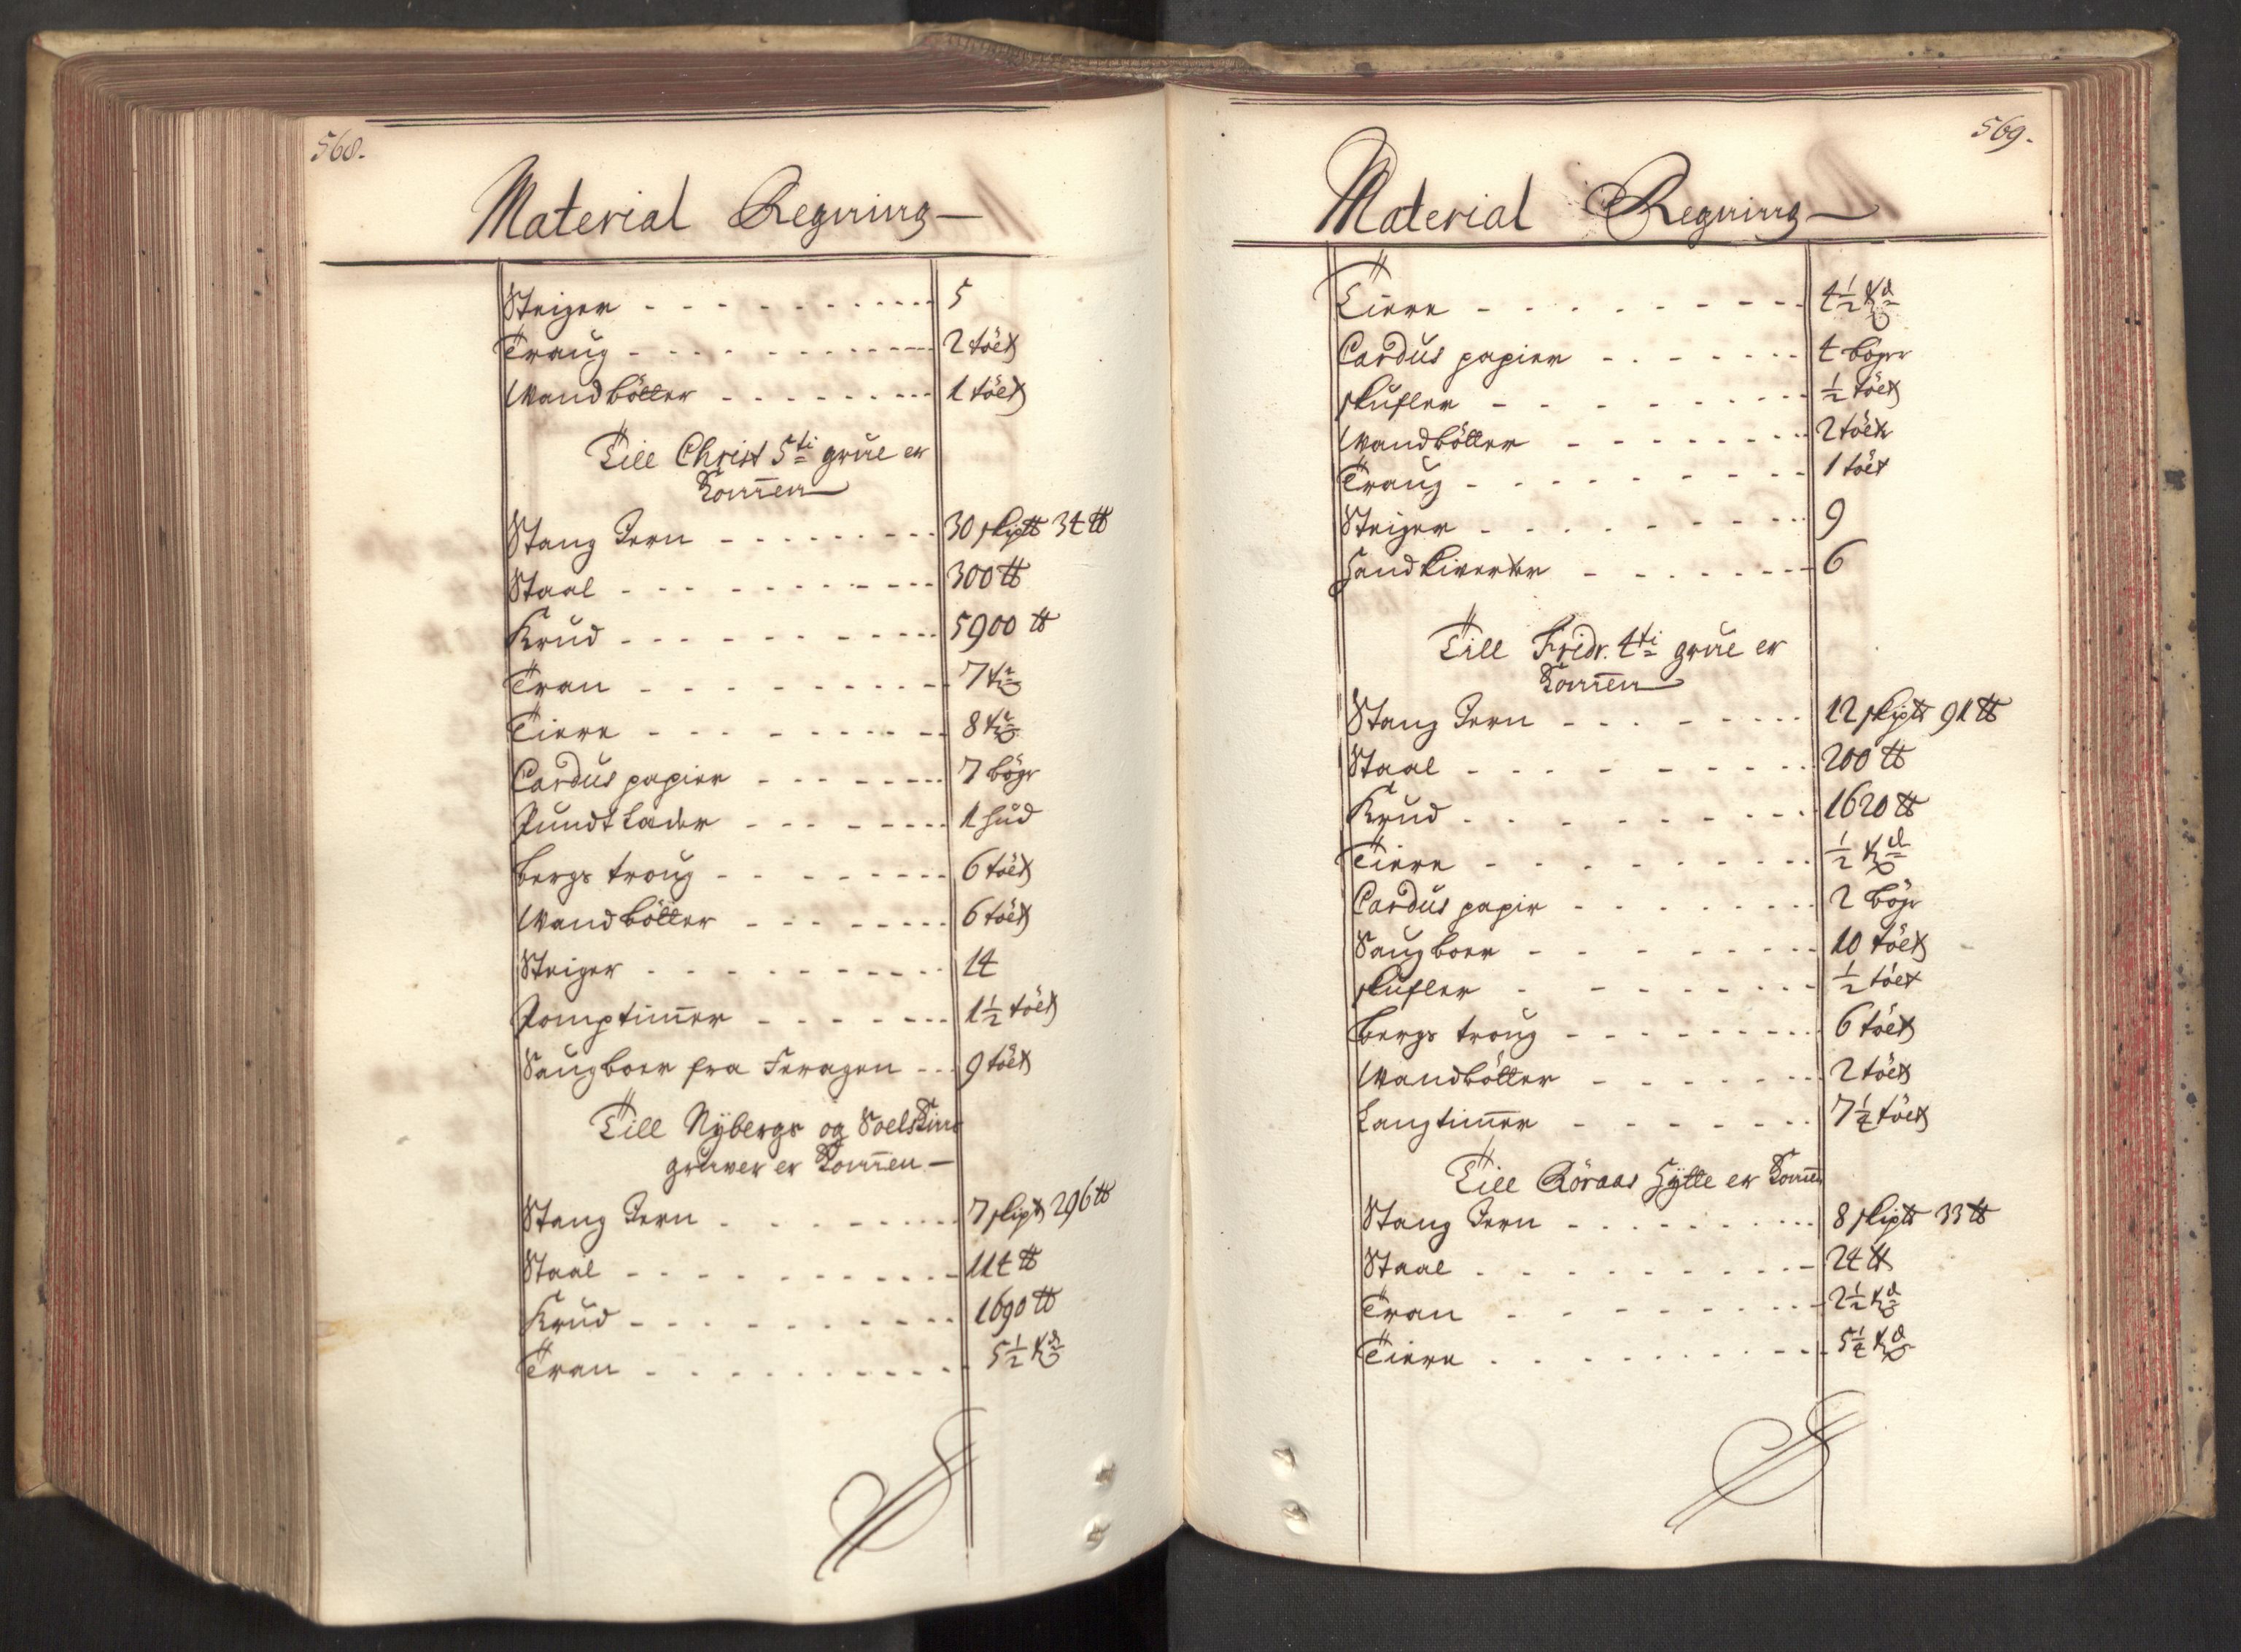 568.
Material Regning
Steiger 5
Traug 2 töelt
Wandbötter 1 töelt
Till Christ 5ti grue er
Kommen
Stang Jern 30 skiptt 34 tt
Staal 300 tt
Krud 5900 tt
Tran 7
Tiere 8
Cardus papier 7 bögr
Pundt Lader 1 hud
bergs troug 6 töelt
Wandbötter 6 töelt
Steiger 14
Pomptimer 1½ töelt
Saugboer fra Feragen 9 töelt
Till Nybergs og Soelskins
gruver er Kommen
Stang Jern 7 skipt 296 tt
Staal 114 tt
Krud 1690 tt
Tran 5½
569.
Material Regning
Tiere 4½
Cardus papier 4 böger
skufler ½ töelt
Wandbötter 2 töelt
Traug 1 töelt
Steiger 9
Handkiverter 6
Till Fridr. 4ti grue er
Kommen
Stang Jern 12 skiptt 91 tt
Staal 200 tt
Krud 1620 tt
Tiere ½
Cardus papir 2 bögr
Saugboer 10 töelt
skufler ½ töelt
bergs troug 6 töelt
Wandbötter 2 töelt
Langtimer 7¼ töelt
Till Röraas Hytte er Kommen
Stang Jern 8 skiptt 33 tt
Staal 24 tt
Tran 2½
Tiere 5¼